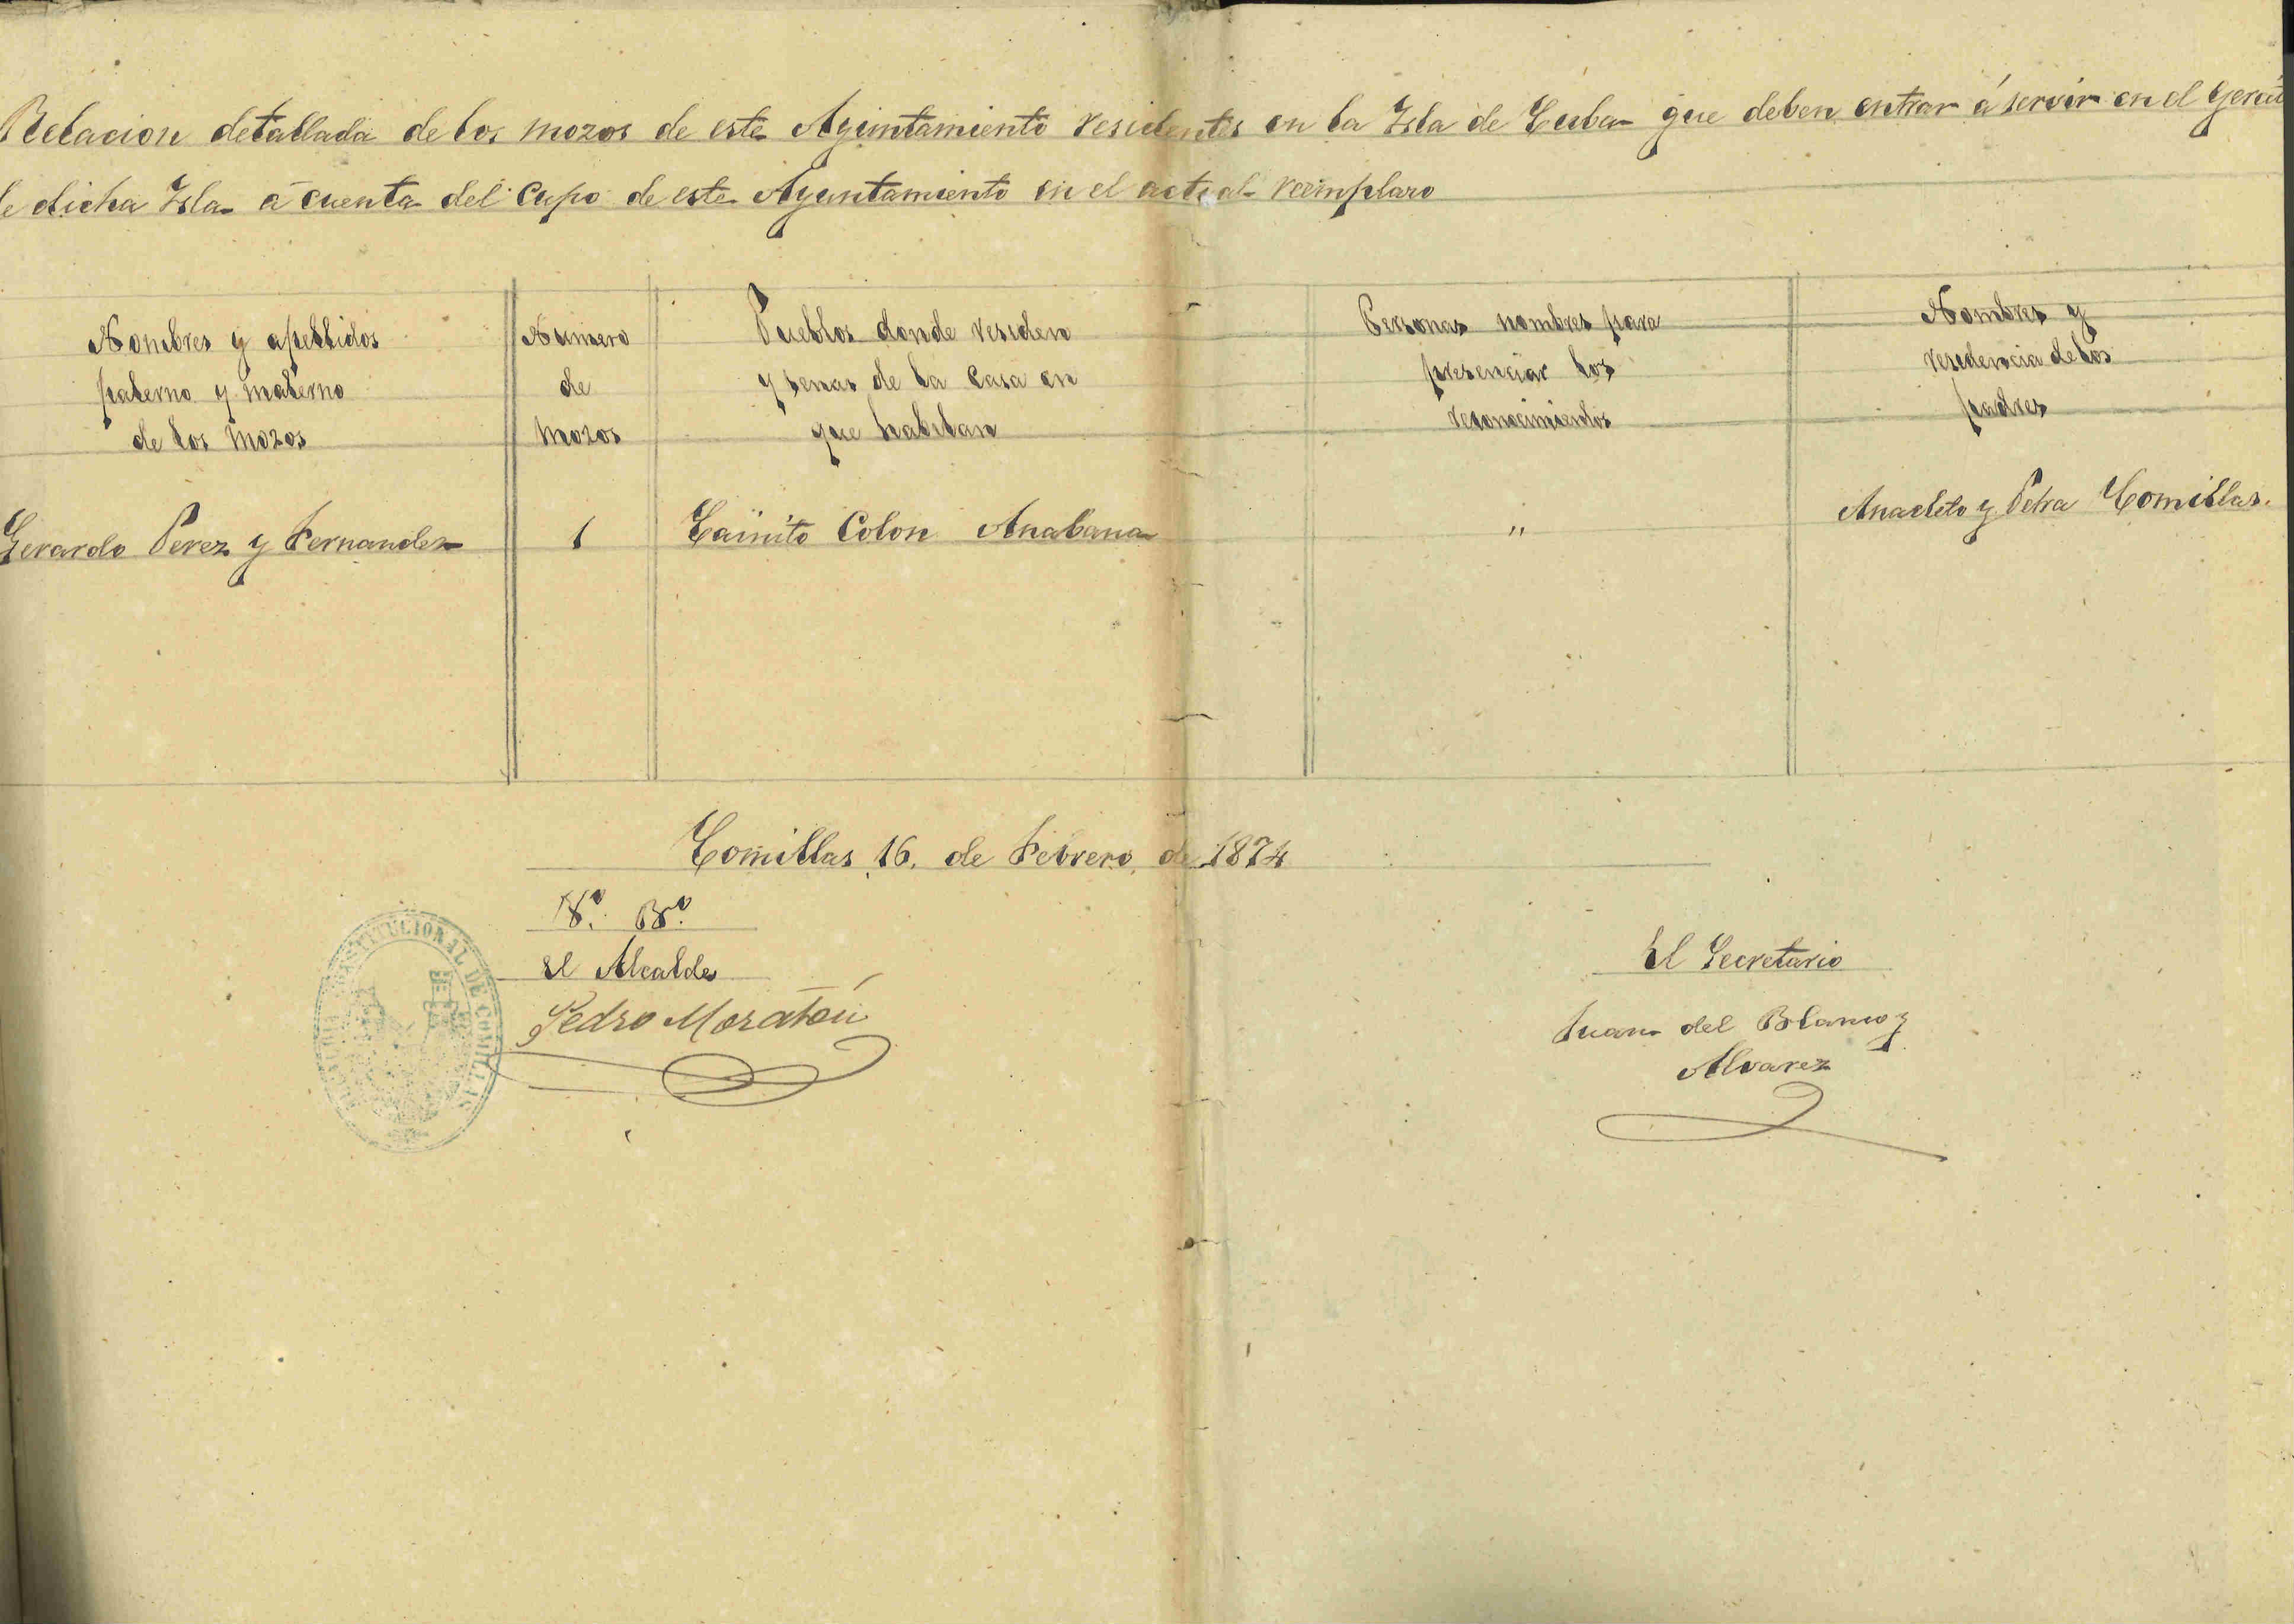 Relacion detallada de los mozos de este Ayuntamiento residentes en la Isla de Cuba que deben entrar á servir en el Gercit
de dicha Isla á cuenta del Cupo de este Ayuntamiento en el actual reemplazo
Nombres y apellidos
paterno y materno
de los Mozos
Numero
de
Mozos
Pueblos donde residen
y senas de la casa en
que habitan
Personas nombres para
presenciar los
reconocimientos
Nombres y
residencia de los
padres
Gerardo Perez y Fernandez
1
Cainito Colon Anabana
"
Anacleto y Petra Comillas.
Comillas 16. de Febrero de 1874
Vº. Bº.
El Alcalde
Pedro Moratón
El Secretario
Juan del Blanco y
Alvarez
CONSTITUCIONAL DE COMILLAS